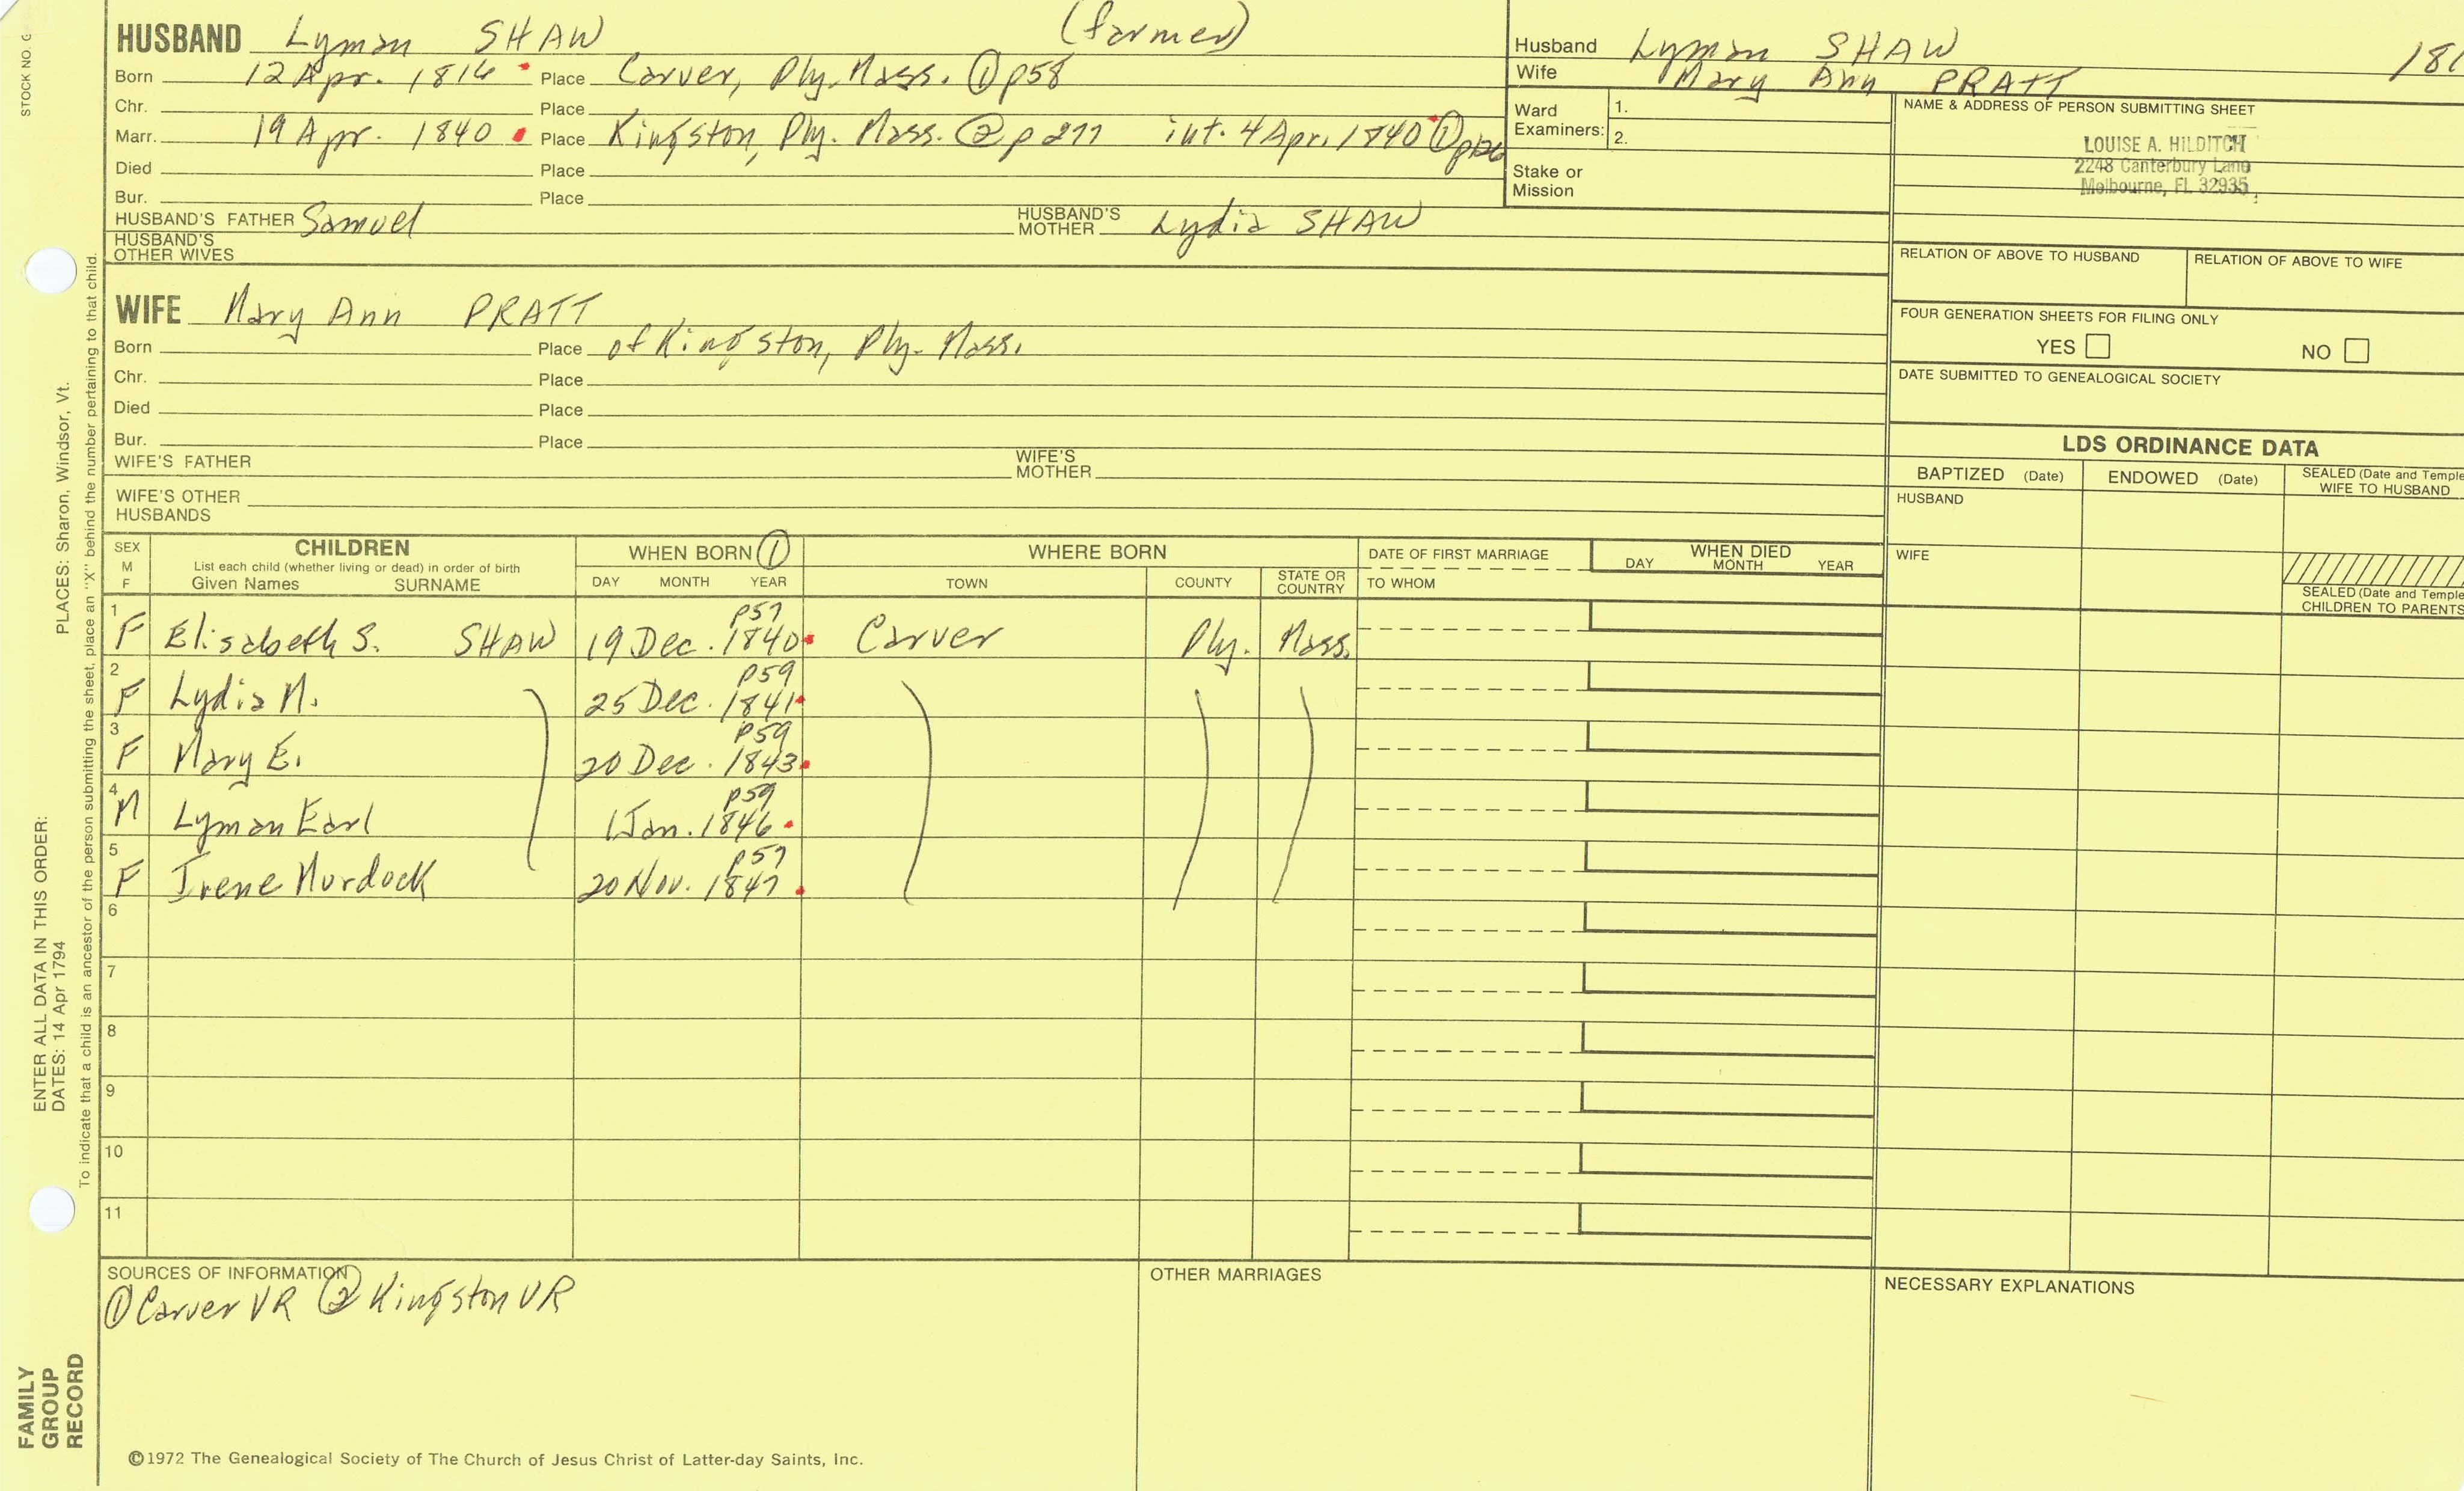 STOCK NO. G
HUSBAND Lyman SHAW (farmer)
Born 12 Apr. 1816 Place Carver, Ply. Mass. ① p58
Chr. Place
Marr. 19 Apr. 1840 Place Kingston, Ply. Mass. ② p277 int. 4 Apr. 1840 ①
Died Place
Bur. Place
HUSBAND'S FATHER Samuel HUSBAND'S MOTHER Lydia SHAW
HUSBAND'S OTHER WIVES
WIFE Mary Ann PRATT
Born Place of Kingston, Ply. Mass.
Chr. Place
Died Place
Bur. Place
WIFE'S FATHER WIFE'S MOTHER
WIFE'S OTHER HUSBANDS
Husband Lyman SHAW 181
Wife Mary Ann PRATT
Ward Examiners: 1.
2.
Stake or Mission
NAME & ADDRESS OF PERSON SUBMITTING SHEET
LOUISE A. HILDITCH
2248 Canterbury Lane
Melbourne, FL 32935
RELATION OF ABOVE TO HUSBAND RELATION OF ABOVE TO WIFE
FOUR GENERATION SHEETS FOR FILING ONLY
YES NO
DATE SUBMITTED TO GENEALOGICAL SOCIETY
LDS ORDINANCE DATA
BAPTIZED (Date) ENDOWED (Date) SEALED (Date and Temple
WIFE TO HUSBAND
HUSBAND
WIFE
SEALED (Date and Temple
CHILDREN TO PARENTS
SEX M F
CHILDREN
List each child (whether living or dead) in order of birth
Given Names SURNAME
WHEN BORN ①
DAY MONTH YEAR
WHERE BORN
TOWN COUNTY STATE OR COUNTRY
DATE OF FIRST MARRIAGE
TO WHOM
WHEN DIED
DAY MONTH YEAR
p57
1 F Elisabeth S. SHAW 19 Dec. 1840 Carver Ply. Mass.
p59
2 F Lydia M. 25 Dec. 1841
p59
3 F Mary E. 20 Dec. 1843
p59
4 M Lyman Earl 1 Jan. 1846
p57
5 F Irene Murdock 20 Nov. 1847
6
7
8
9
10
11
SOURCES OF INFORMATION
① Carver VR ② Kingston VR
OTHER MARRIAGES
NECESSARY EXPLANATIONS
©1972 The Genealogical Society of The Church of Jesus Christ of Latter-day Saints, Inc.
PLACES: Sharon, Windsor, Vt.
ENTER ALL DATA IN THIS ORDER:
DATES: 14 Apr 1794
To indicate that a child is an ancestor of the person submitting the sheet, place an "X" behind the number pertaining to that child.
FAMILY
GROUP
RECORD